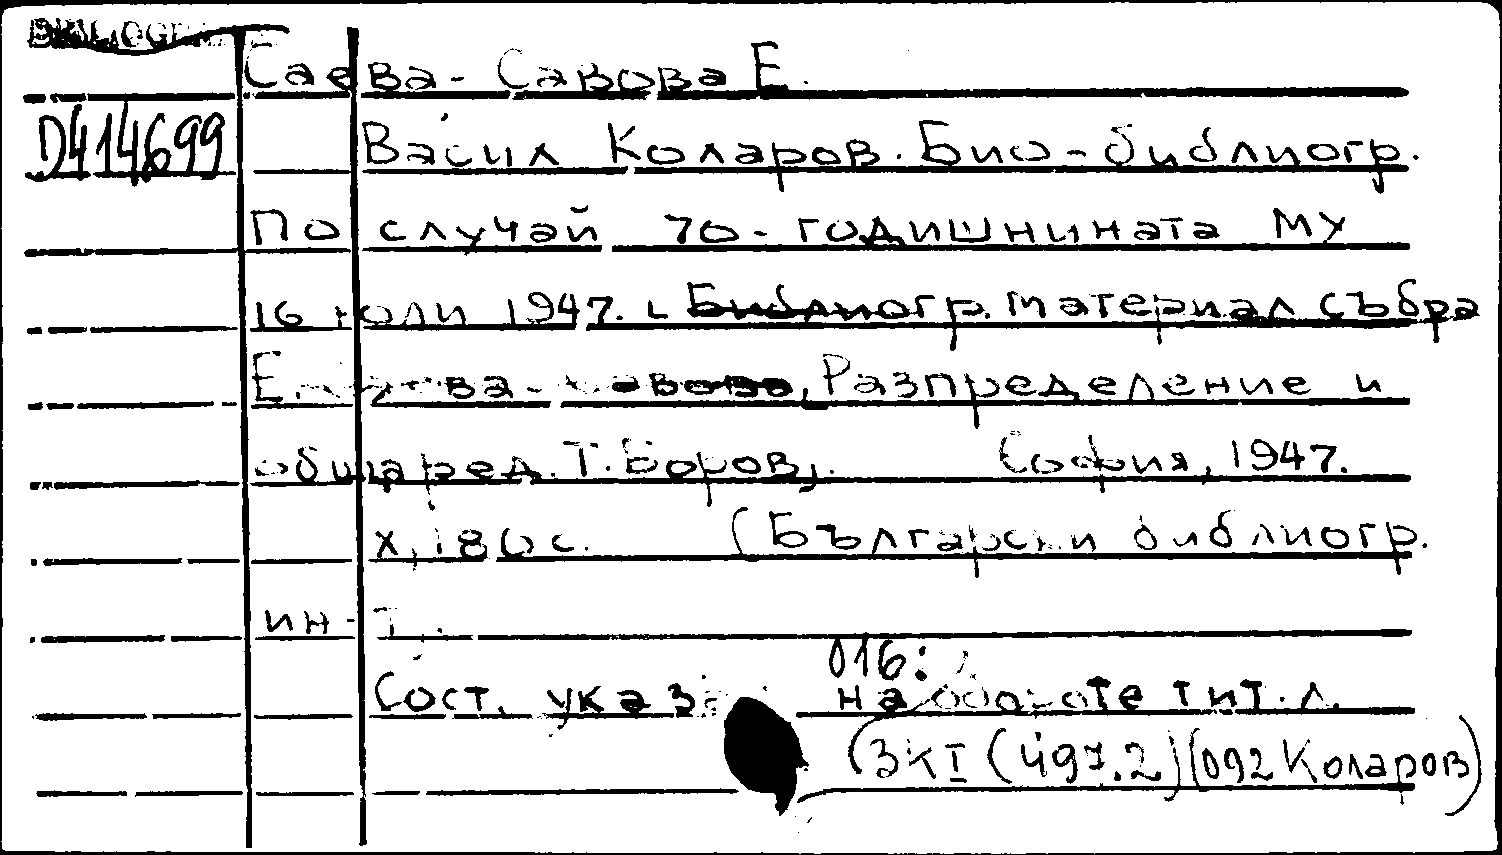 Саева-Савова Е.
D414699
Васил Коларов. Био-библиогр.
По случай 70-годишнината му
16 юли 1947. Библиогр. материал събра
Е. Разпределение и
обща ред. Т. Боров,. София, 1947.
X, 180 с. (Български библиогр.
ин-т).
016:
Сост. указ. на обороте тит. л.
(3КI (497.2)(092 Коларов)